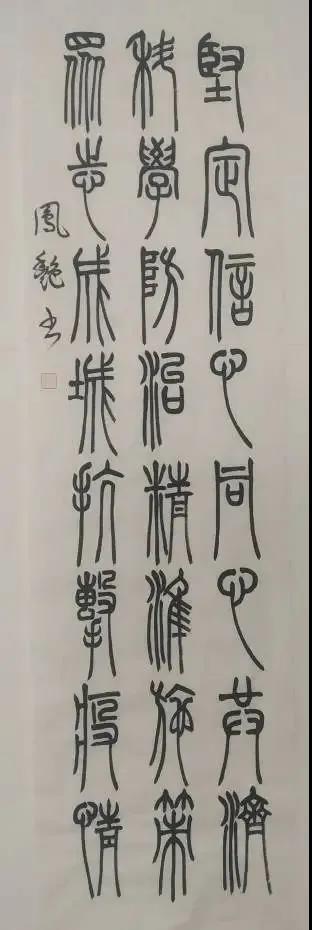 堅定信心同心共濟
科學防治精準施策
眾志成城抗擊疫情
鳳艷書